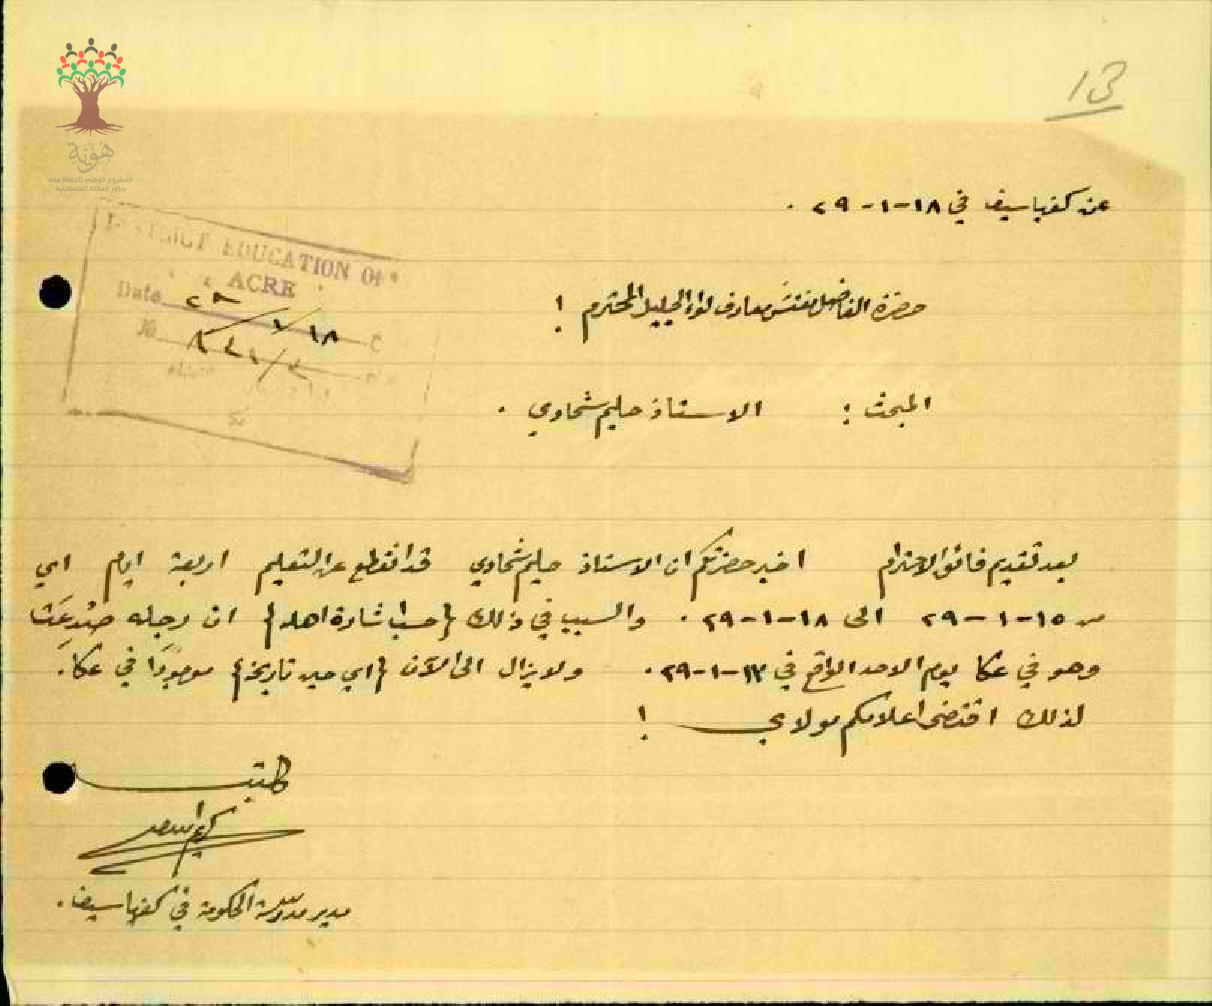 13
هُوِيَّة
المشروع الوطني للحفاظ على
جذور العائلة الفلسطينية
عن كفرياسيف في ١٨-١-٢٩ .
DISTRICT EDUCATION OF
ACRE
Date ١٨/١/٢٩
No
حضرة الفاضل مفتش معارف لواء الجليل المحترم !
المبحث : الاستاذ حليم شحادي .
بعد تقديم فائق الاحترام اخبر حضرتكم ان الاستاذ حليم شحادي قد انقطع عن التعليم اربعة ايام اي
من ١٥-١-٢٩ الى ١٨-١-٢٩ . والسبب في ذلك {حسب اشارة اهله} ان رجله صُدِعَت
وهو في عكا يوم الاحد الواقع في ١٣-١-٢٩ . ولا يزال الى الآن {اي حين تاريخه} موجودًا في عكا .
لذلك اقتضى اعلامكم مولاي !
كاتبه
مدير مدرسة الحكومة في كفرياسيف .